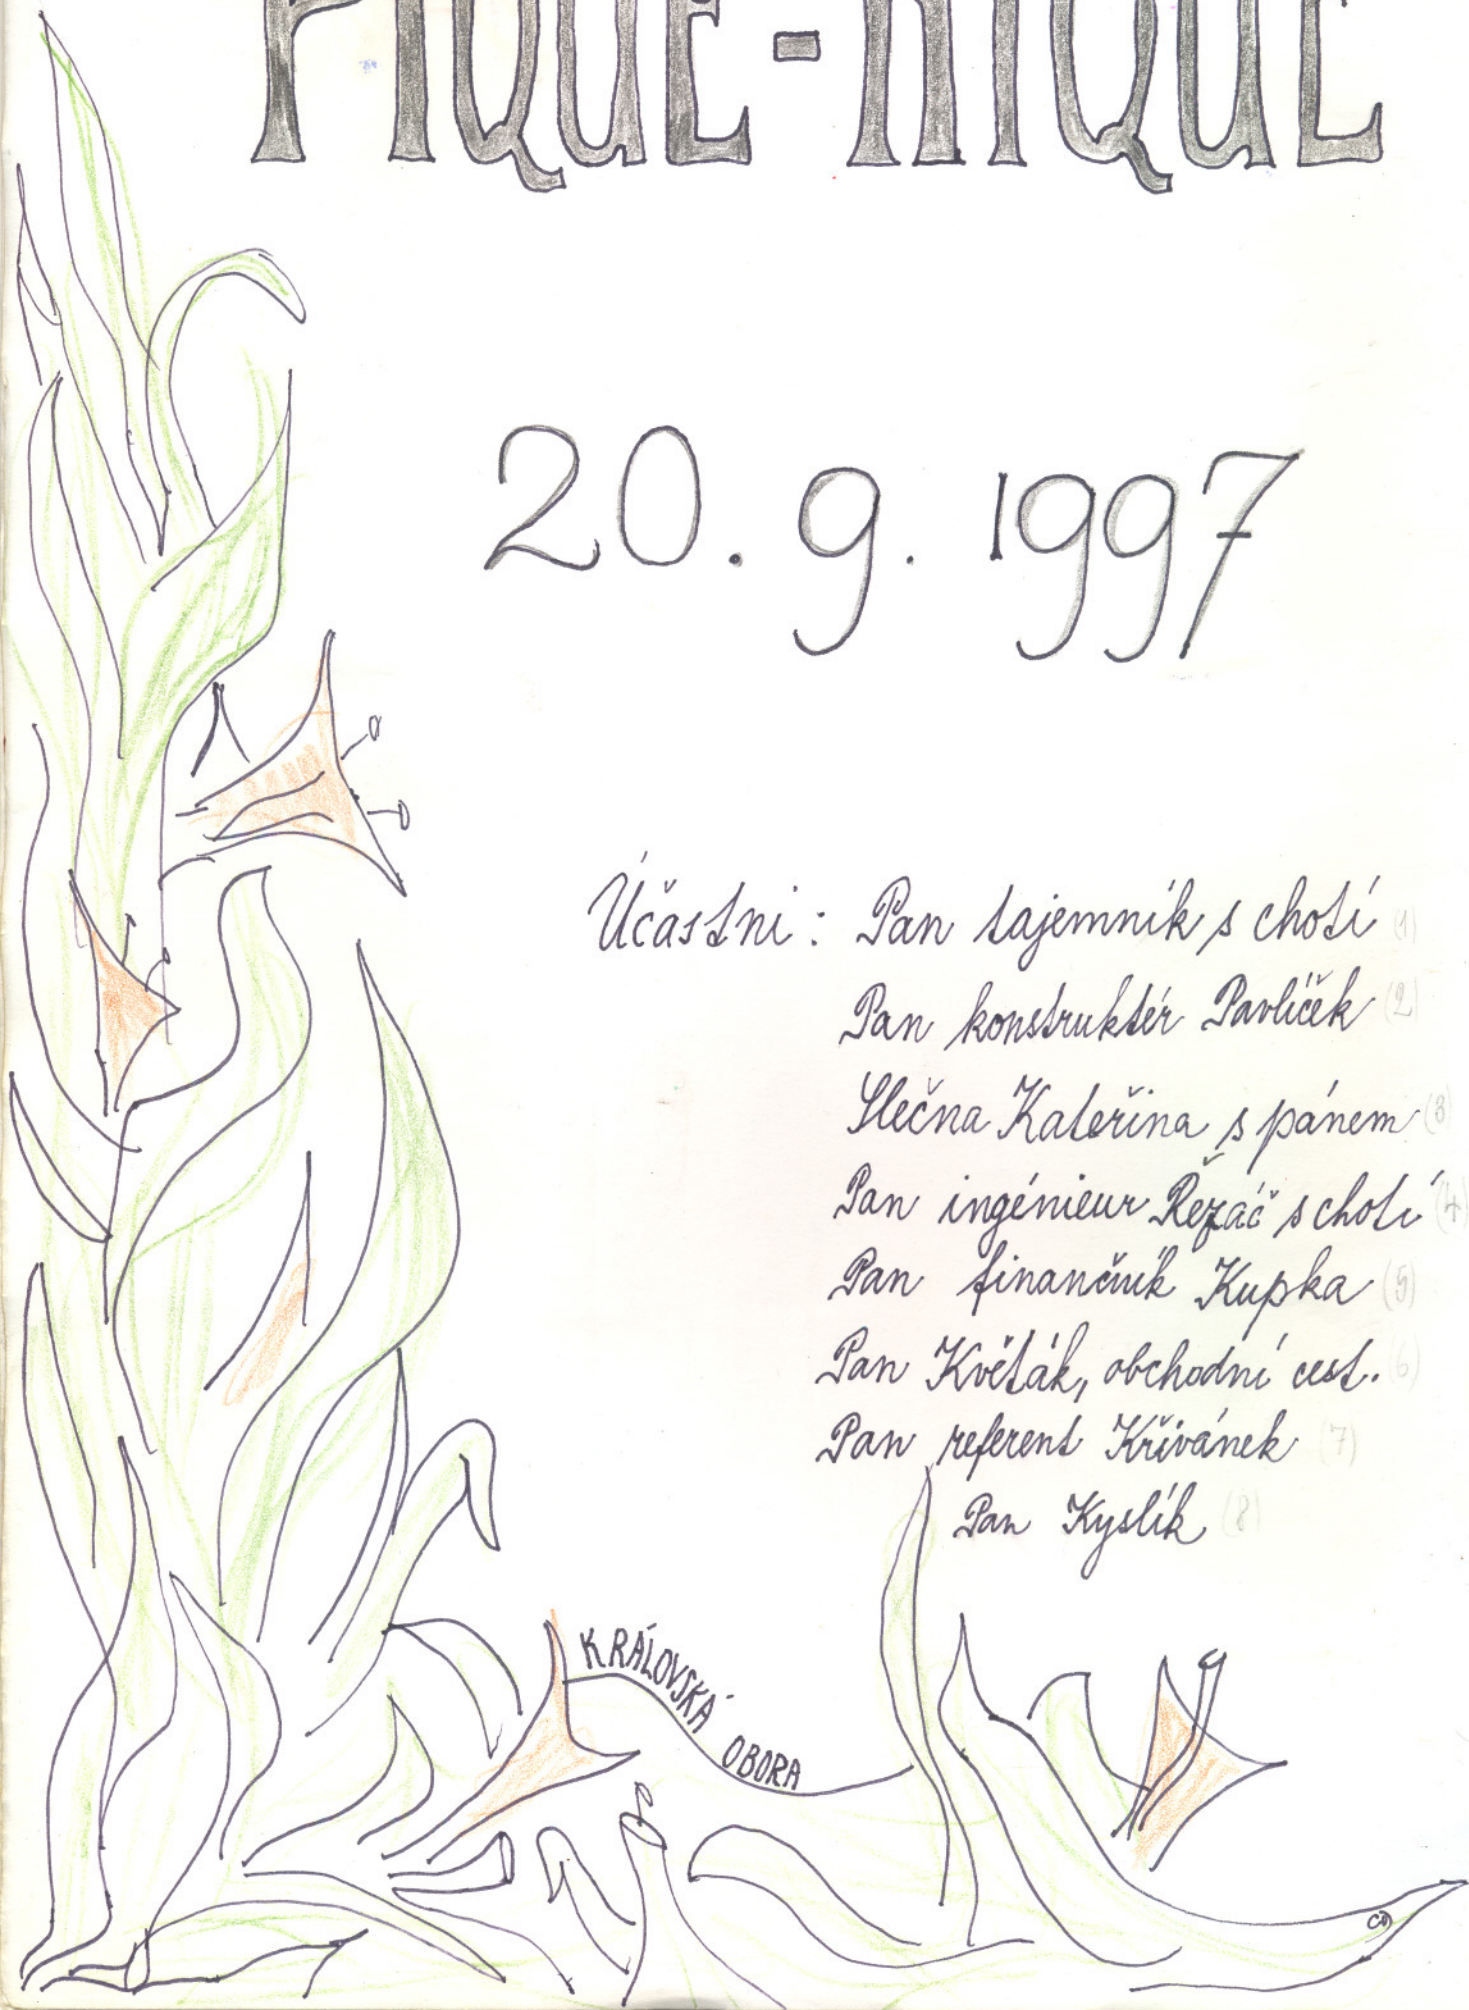 PIQUE-NIQUE
20. 9. 1997
Účastni: Pan tajemník s chotí (1)
Pan konstruktér Pavlíček (2)
Slečna Kateřina s pánem (3)
Pan ingénieur Řezáč s chotí (4)
Pan finančník Kupka (5)
Pan Květák, obchodní cest. (6)
Pan referent Křivánek (7)
Pan Kyslík (8)
KRÁLOVSKÁ OBORA